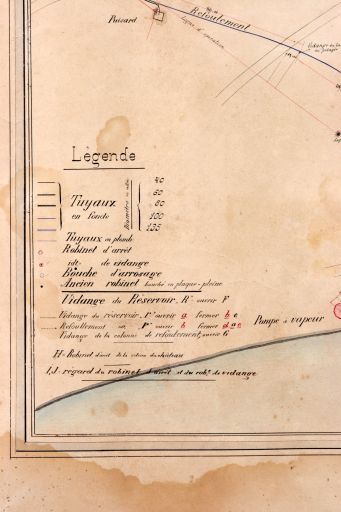 Puisard
Refoulement
Ligne d'opération
Vidange du
Légende
Tuyaux
en fonte
Diamètre
40
60
80
100
135
Tuyaux en plomb
Robinet d'arrêt
idt. de vidange
Bouche d'arrosage
Ancien robinet bouché en plaque-pleine
Vidange du Réservoir, Rt ouvrir F
Vidange du réservoir, Rt ouvrir a fermer b c
Refoullement Rt ouvrir b fermer d a c
Vidange de la colonne de refoulement, ouvrir G
Pompe à vapeur
H- Robinet d'arrêt de la colonne du château
I,J- regard du robinet d'arrêt et du robt de vidange